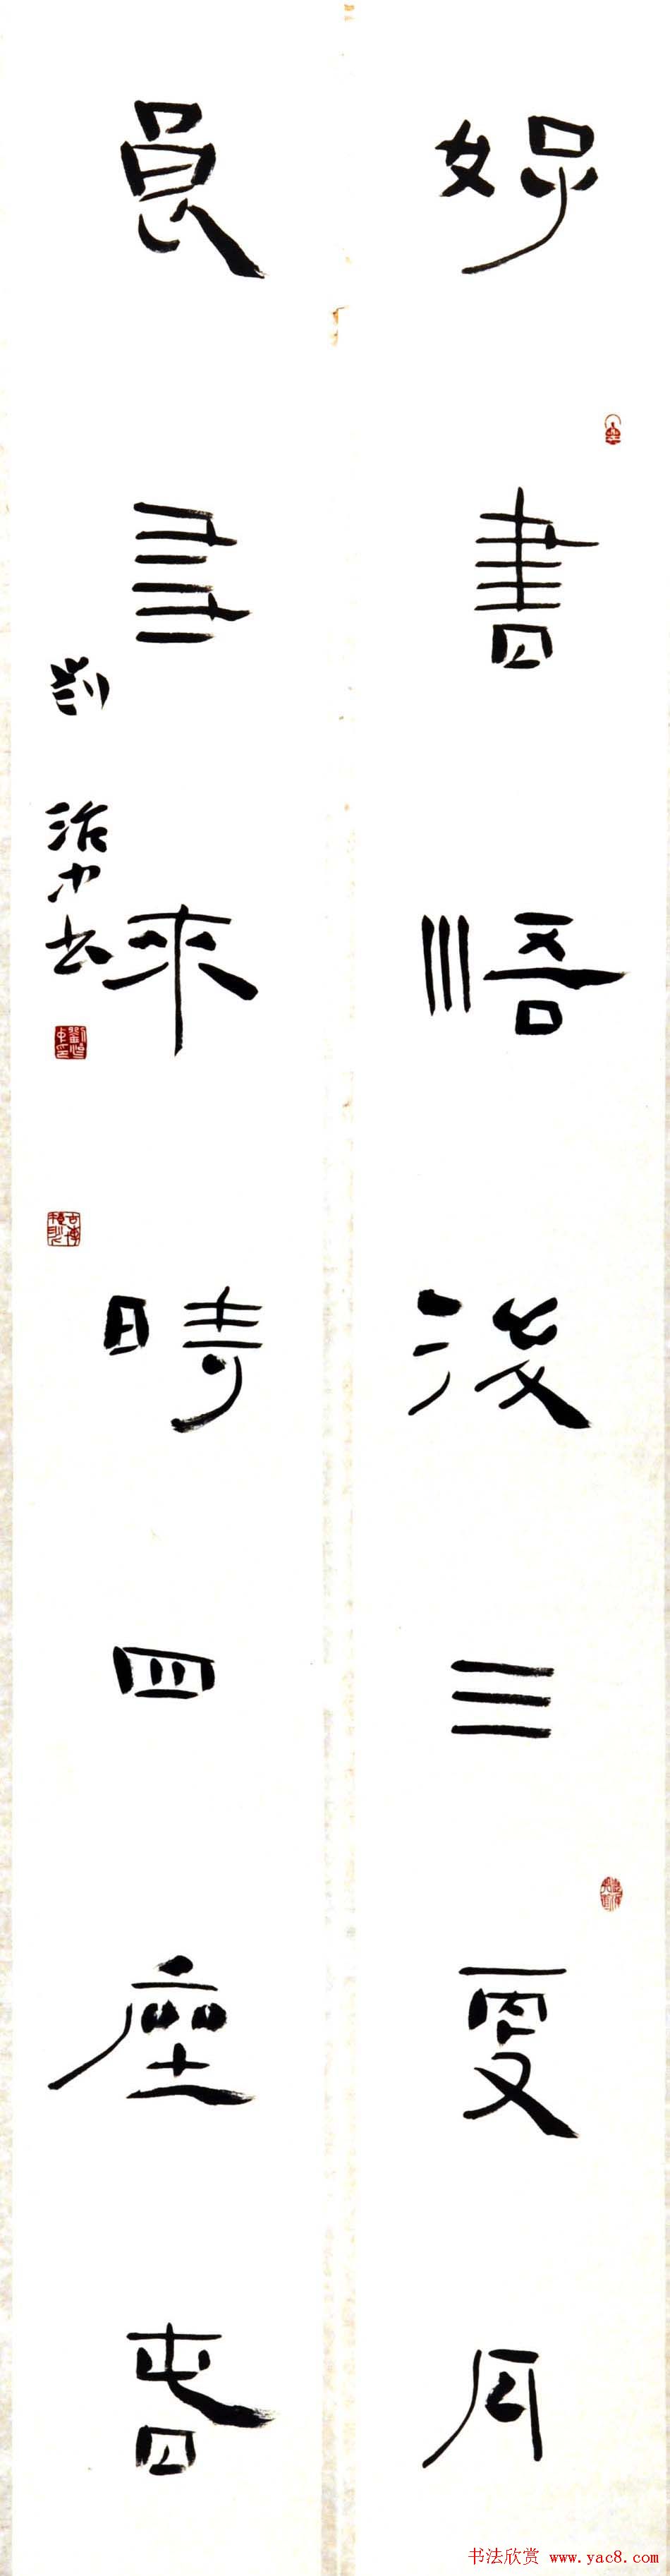 好書悟後三更月
良友來時四座春
劉洺中书
书法欣赏 www.yac8.com